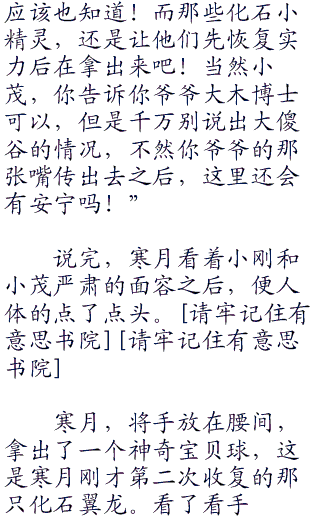 应该也知道！而那些化石小
精灵，还是让他们先恢复实
力后在拿出来吧！当然小
茂，你告诉你爷爷大木博士
可以，但是千万别说出大傻
谷的情况，不然你爷爷的那
张嘴传出去之后，这里还会
有安宁吗！”
说完，寒月看着小刚和
小茂严肃的面容之后，便人
体的点了点头。[请牢记住有
意思书院][请牢记住有意思
书院]
寒月，将手放在腰间，
拿出了一个神奇宝贝球，这
是寒月刚才第二次收复的那
只化石翼龙。看了看手